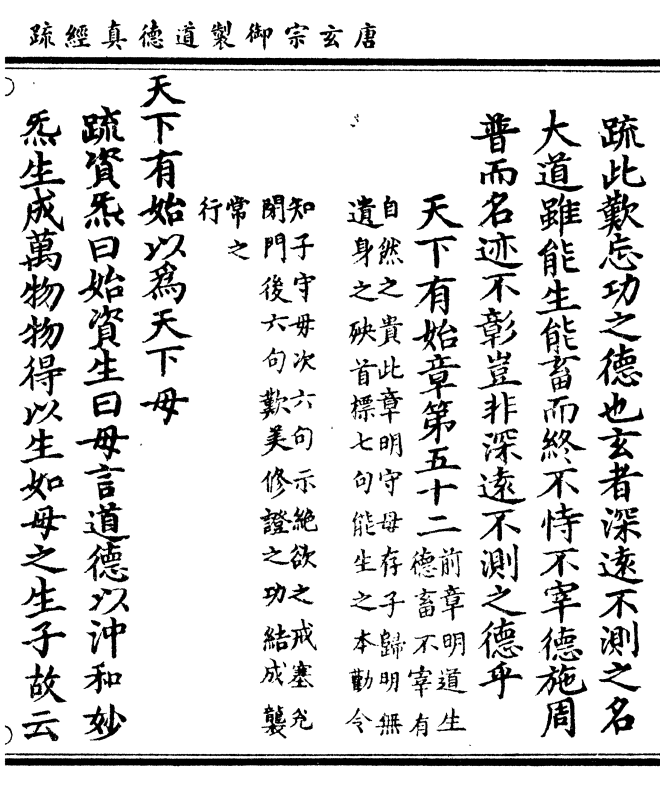 唐玄宗御製道德真經疏
疏此歎忘功之德也玄者深遠不測之名
大道雖能生能畜而終不恃不宰德施周
普而名迹不彰豈非深遠不測之德乎
天下有始章第五十二
前章明道生
德畜不宰有
自然之貴此章明守母存子歸明無
遺身之殃首標七句能生之本勸令
知子守母次六句示絶欲之戒塞兊
閉門後六句歎美修證之功結成襲
常之
行
天下有始以爲天下母
疏資炁曰始資生曰母言道德以沖和妙
炁生成萬物物得以生如母之生子故云